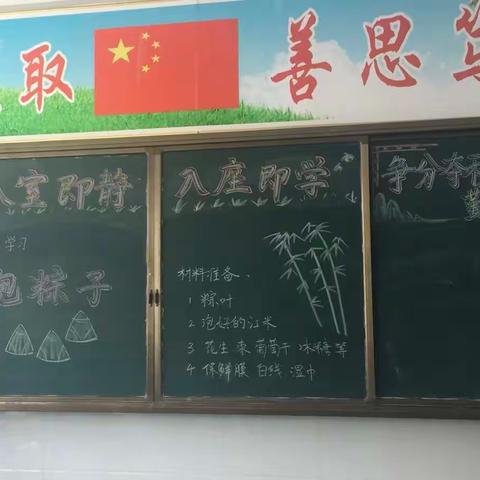 取 善思
入室即静
入座即学
争分夺
学习
包粽子
材料准备、
1 粽叶
2 泡好的江米
3 花生 枣 葡萄干 冰糖 等
4 保鲜膜 白线 湿巾